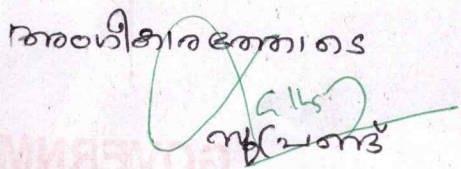 അംഗീകാരത്തോടെ
സൂപ്രണ്ട്